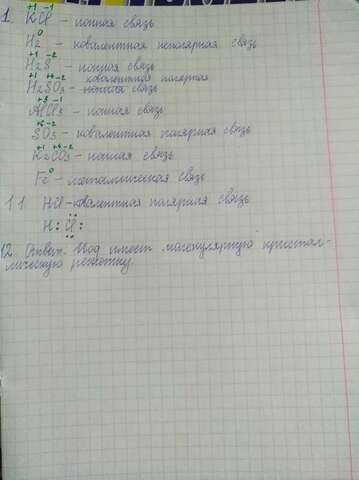 1. +1 -1 KCl – ионная связь
0 H2 – ковалентная неполярная связь
+1 -2 H2S – ионная связь
ковалентная полярная
+1 +4 -2 H2SO3 – ионная связь
+3 -1 AlCl3 – ионная связь
+6 -2 SO3 – ковалентная полярная связь
+1 +4 -2 K2CO3 – ионная связь
0 Fe – металлическая связь
11. HCl – ковалентная полярная связь
H : Cl :
12. Ответ. Иод имеет молекулярную кристал-
лическую решетку.